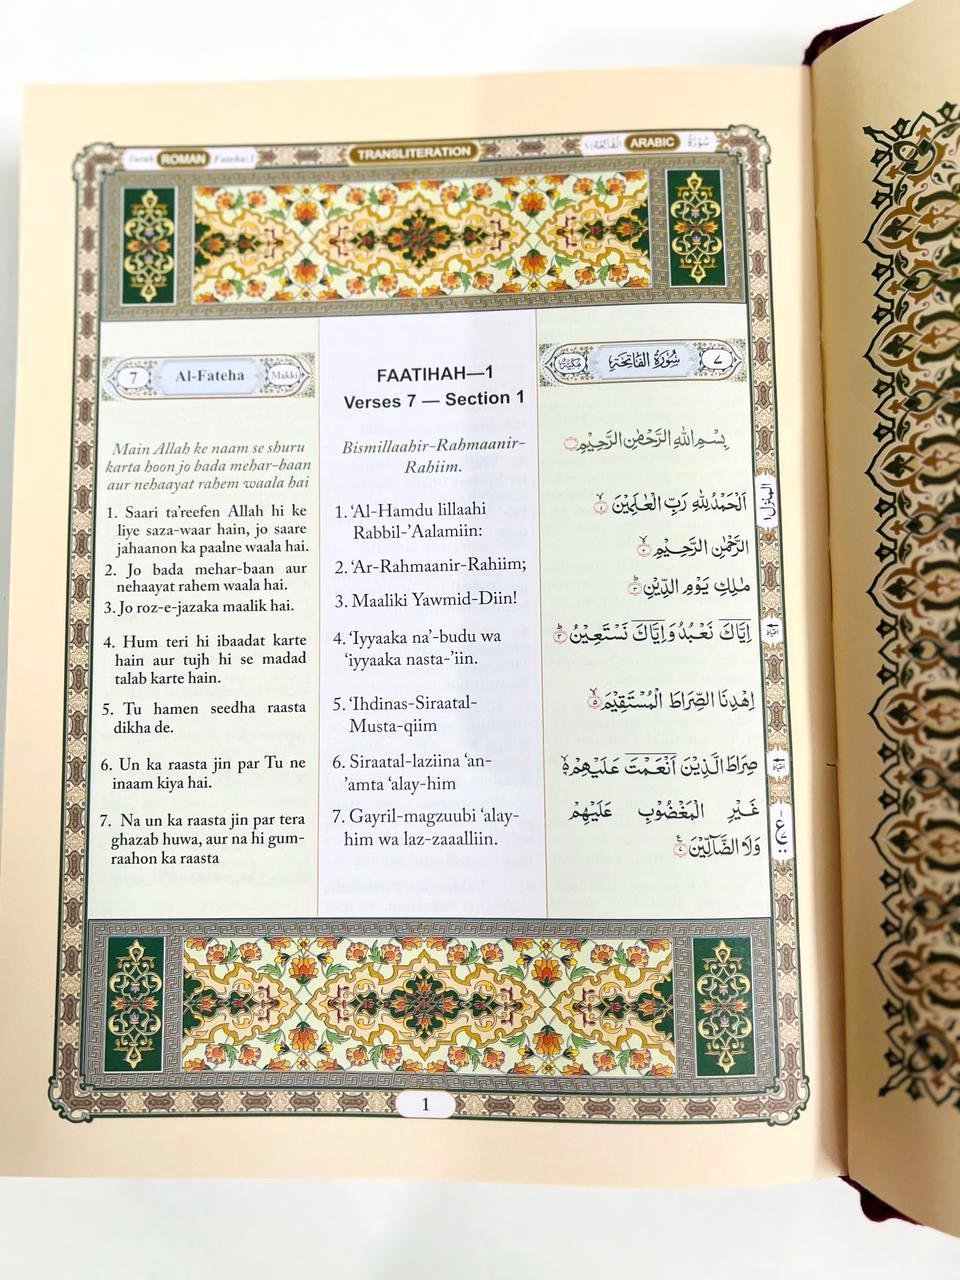 Surah ROMAN Fateha:1
TRANSLITERATION
الْفَاتِحَة ١ ARABIC سُوْرَةُ
7 Al-Fateha Makki
Main Allah ke naam se shuru
karta hoon jo bada mehar-baan
aur nehaayat rahem waala hai
1. Saari ta'reefen Allah hi ke
liye saza-waar hain, jo saare
jahaanon ka paalne waala hai.
2. Jo bada mehar-baan aur
nehaayat rahem waala hai.
3. Jo roz-e-jazaka maalik hai.
4. Hum teri hi ibaadat karte
hain aur tujh hi se madad
talab karte hain.
5. Tu hamen seedha raasta
dikha de.
6. Un ka raasta jin par Tu ne
inaam kiya hai.
7. Na un ka raasta jin par tera
ghazab huwa, aur na hi gum-
raahon ka raasta
FAATIHAH—1
Verses 7 — Section 1
Bismillaahir-Rahmaanir-
Rahiim.
1. ‘Al-Hamdu lillaahi
Rabbil-’Aalamiin:
2. ‘Ar-Rahmaanir-Rahiim;
3. Maaliki Yawmid-Diin!
4. ‘Iyyaaka na’-budu wa
‘iyyaaka nasta-’iin.
5. ‘Ihdinas-Siraatal-
Musta-qiim
6. Siraatal-laziina ‘an-
’amta ‘alay-him
7. Gayril-magzuubi ‘alay-
him wa laz-zaaalliin.
٧ سُوْرَةُ الْفَاتِحَةِ مَكِّيَّةٌ
بِسْمِ اللّٰهِ الرَّحْمٰنِ الرَّحِيْمِ
اَلْحَمْدُ لِلّٰهِ رَبِّ الْعٰلَمِيْنَ ۙ﴿١﴾
الرَّحْمٰنِ الرَّحِيْمِ ۙ﴿٢﴾
مٰلِكِ يَوْمِ الدِّيْنِ ؕ﴿٣﴾
اِيَّاكَ نَعْبُدُ وَاِيَّاكَ نَسْتَعِيْنُ ؕ﴿٤﴾
اِهْدِنَا الصِّرَاطَ الْمُسْتَقِيْمَ ۙ﴿٥﴾
صِرَاطَ الَّذِيْنَ اَنْعَمْتَ عَلَيْهِمْ
غَيْرِ الْمَغْضُوْبِ عَلَيْهِمْ
وَلَا الضَّآلِّيْنَ ﴿٧﴾
المنزل ١
1